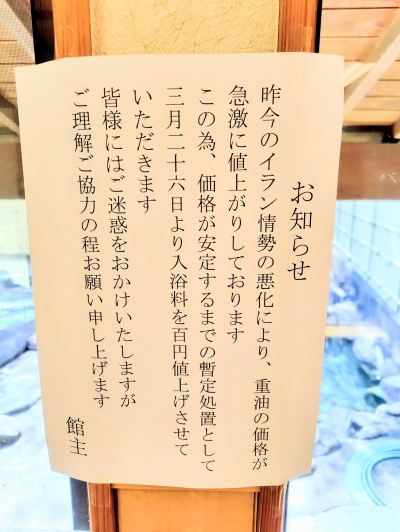 お知らせ
昨今のイラン情勢の悪化により、重油の価格が
急激に値上がりしております
この為、価格が安定するまでの暫定処置として
三月二十六日より入浴料を百円値上げさせて
いただきます
皆様にはご迷惑をおかけいたしますが
ご理解ご協力の程お願い申し上げます
館主